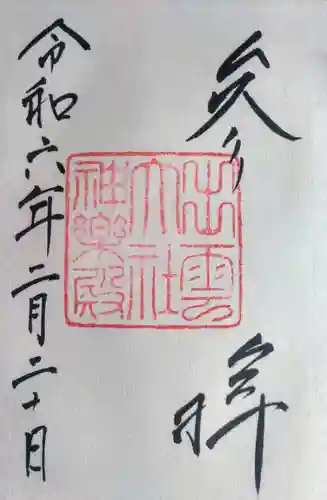 参り拝
出雲
大社
神楽殿
令和六年二月二十日